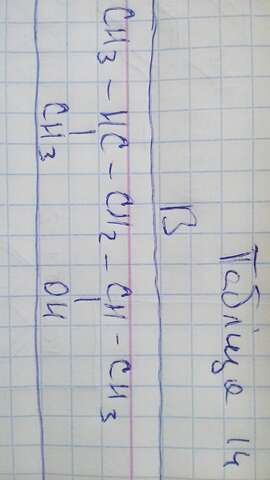 Табліца 14
В
CH3 – HC – CH2 – CH – CH3
| |
CH3 OH